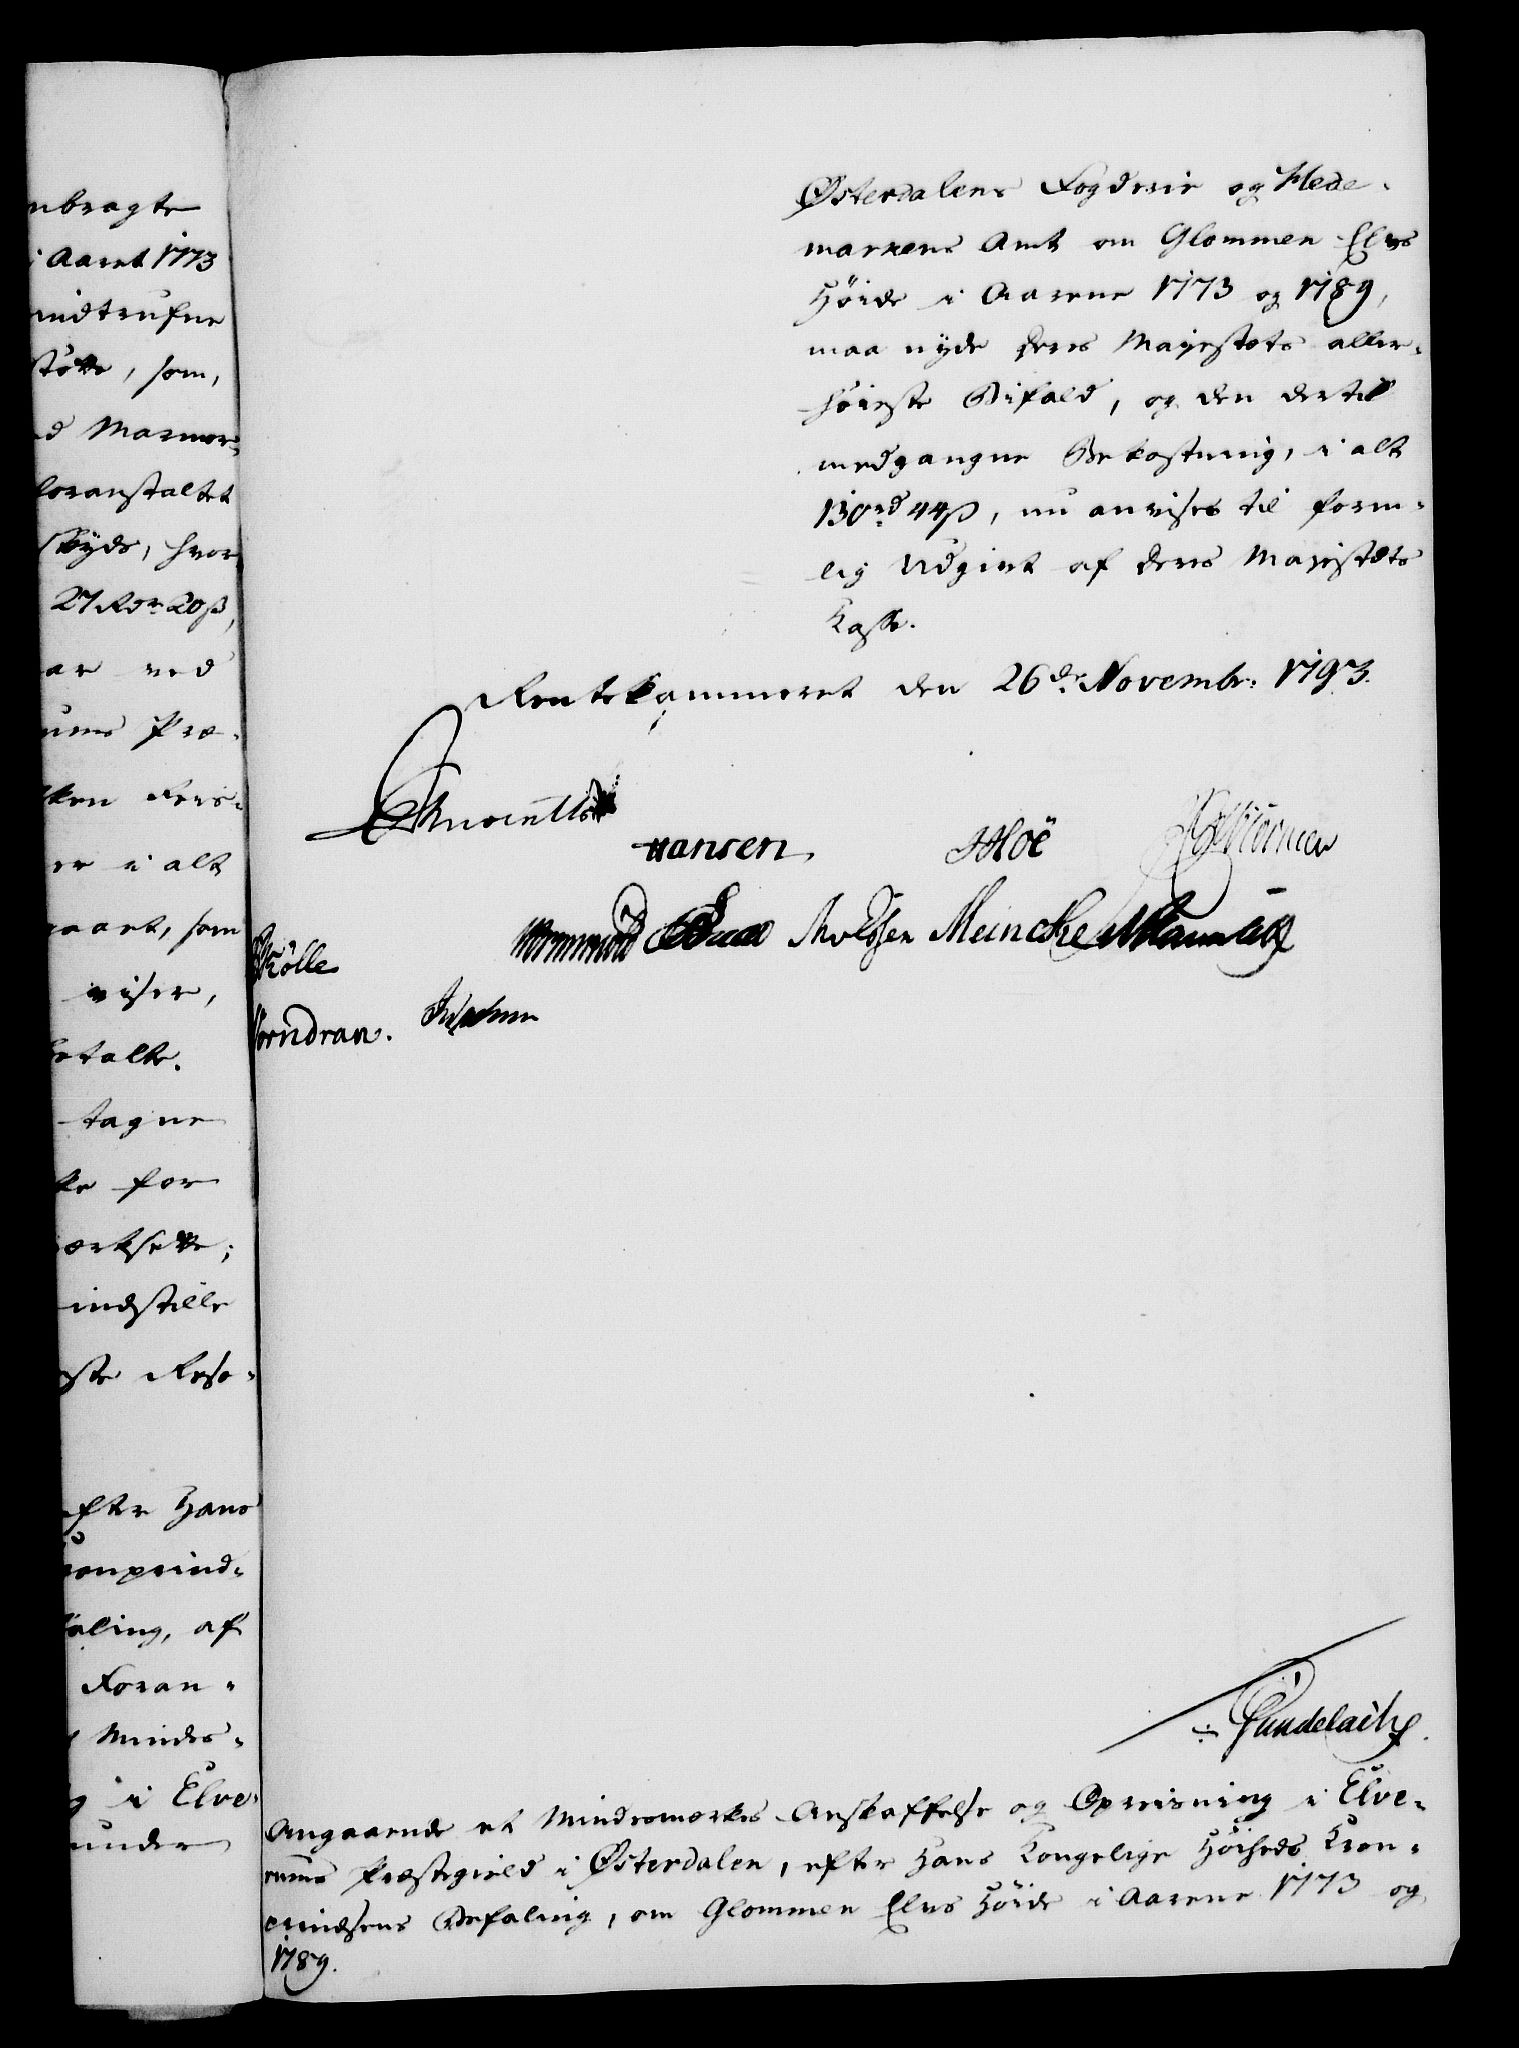 nbragte
i Aaret 1773
indtrufne
støtte, som,
d Marmor-
foranstaltet
skyds, hvor
27 Rdr 20 ß,
ar ved
ums Præ-
ken Fers-
er i alt
gaaet, som
viser,
betalte.
tagne
ke for
værksette;
indstille
ste Reso-
efter Hans
ronprind-
faling, af
Foran-
Mindes-
g i Elve-
under
Østerdalens Fogderie og Hede-
markens Amt om Glommen Elvs
Høide i Aarene 1773 og 1789,
maa nyde Deres Majestæts aller-
høieste Bifald, og den dertil
medgangne Bekostning, i alt
130 rd 44 ß, nu anvises til form-
lig Udgivt af Deres Majestæts
Kasse.
Rentekammeret den 26de Novembr: 1793.
Hansen. Hoë
Wormskiold Meincke
Kølle
Vorndran.
Gundelach.
Angaaende et Mindesmærkes Anskaffelse og Opreisning i Elve-
rums Præstegield i Østerdalen, efter Hans Kongelige Høiheds Kron-
prindsens Befaling, om Glommen Elvs Høide i Aarene 1773 og
1789.